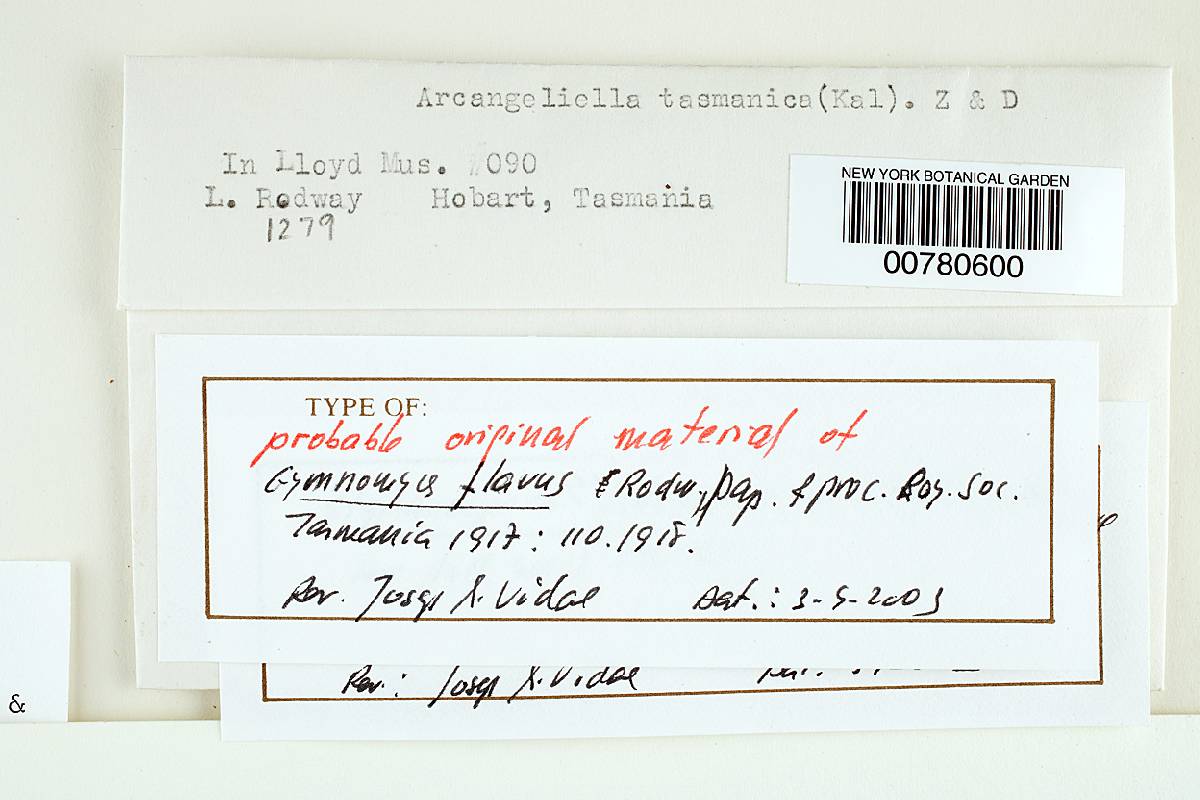 Arcangeliella tasmanica(Kal). Z & D
In Lloyd Mus. 7090
L. Rodway Hobart, Tasmania
1279
NEW YORK BOTANICAL GARDEN
00780600
TYPE OF:
probable original material of
Gymnomyces flavus Rodw., Pap. & proc. Roy. Soc.
Tasmania 1917: 110. 1918.
Rev. Josep M. Vidal Dat.: 3-5-2003
Rev.: Josep M. Vidal
&